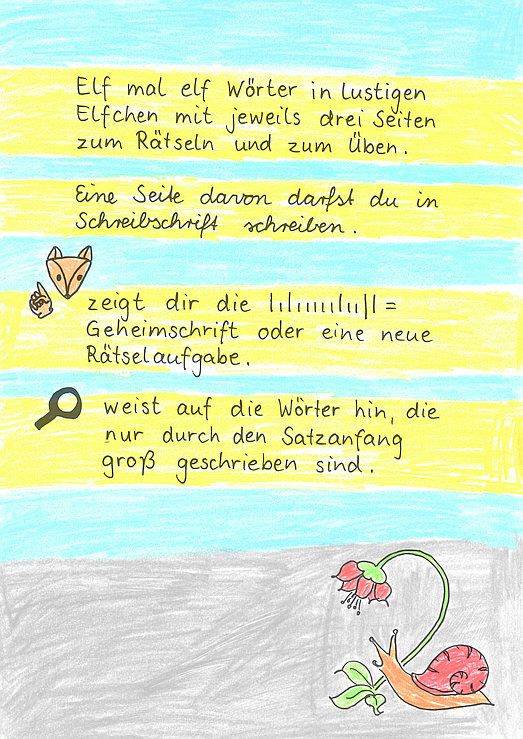 Elf mal elf Wörter in lustigen
Elfchen mit jeweils drei Seiten
zum Rätseln und zum Üben.
Eine Seite davon darfst du in
Schreibschrift schreiben.
zeigt dir die =
Geheimschrift oder eine neue
Rätselaufgabe.
weist auf die Wörter hin, die
nur durch den Satzanfang
groß geschrieben sind.